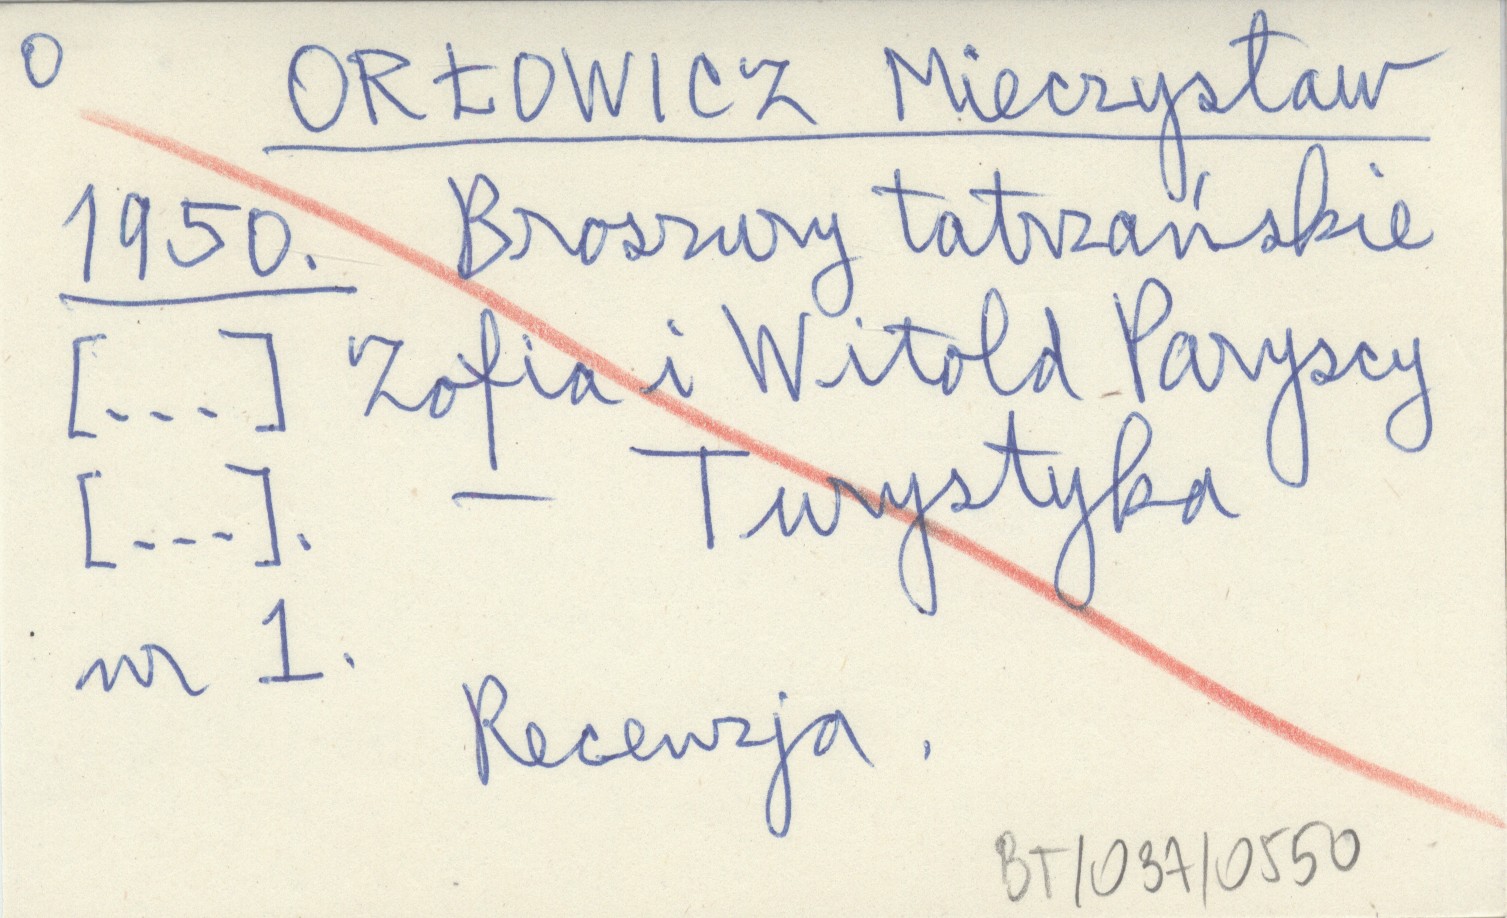 O ORŁOWICZ Mieczysław
1950. Broszury tatrzańskie
[...] Zofia i Witold Paryscy
[...]. — Turystyka
nr 1.
Recenzja.
BT/037/0550